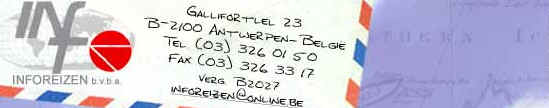 INF
INFOREIZEN b.v.b.a.
GALLIFORTLEI 23
B-2100 ANTWERPEN-BELGIE
TEL (03) 326 01 50
FAX (03) 326 33 17
VERG B2027
INFOREIZEN@ONLINE.BE